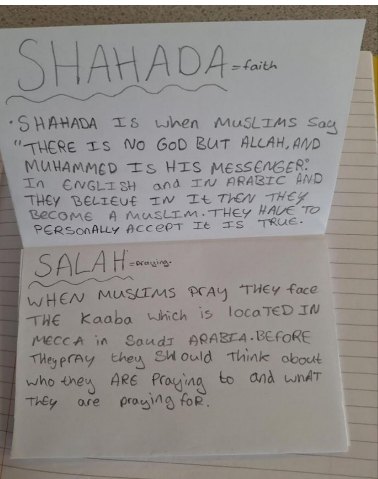 SHAHADA = faith
• SHAHADA IS when MUSLIMS say
"THERE IS NO GOD BUT ALLAH, AND
MUHAMMED IS HIS MESSENGER."
In ENGLISH and IN ARABIC AND
THEY BELIEVE IN It THEN THEY
BECOME A MUSLIM. THEY HAVE TO
PERSONALLY ACCEPT It IS TRUE.
SALAH = praying.
WHEN MUSLIMS PRAY THEY face
THE Kaaba which is locaTED IN
MECCA in SaudI ARABIA. BEFORE
They pray they SHould think about
who they ARE Praying to and wHAT
THEy are praying foR.